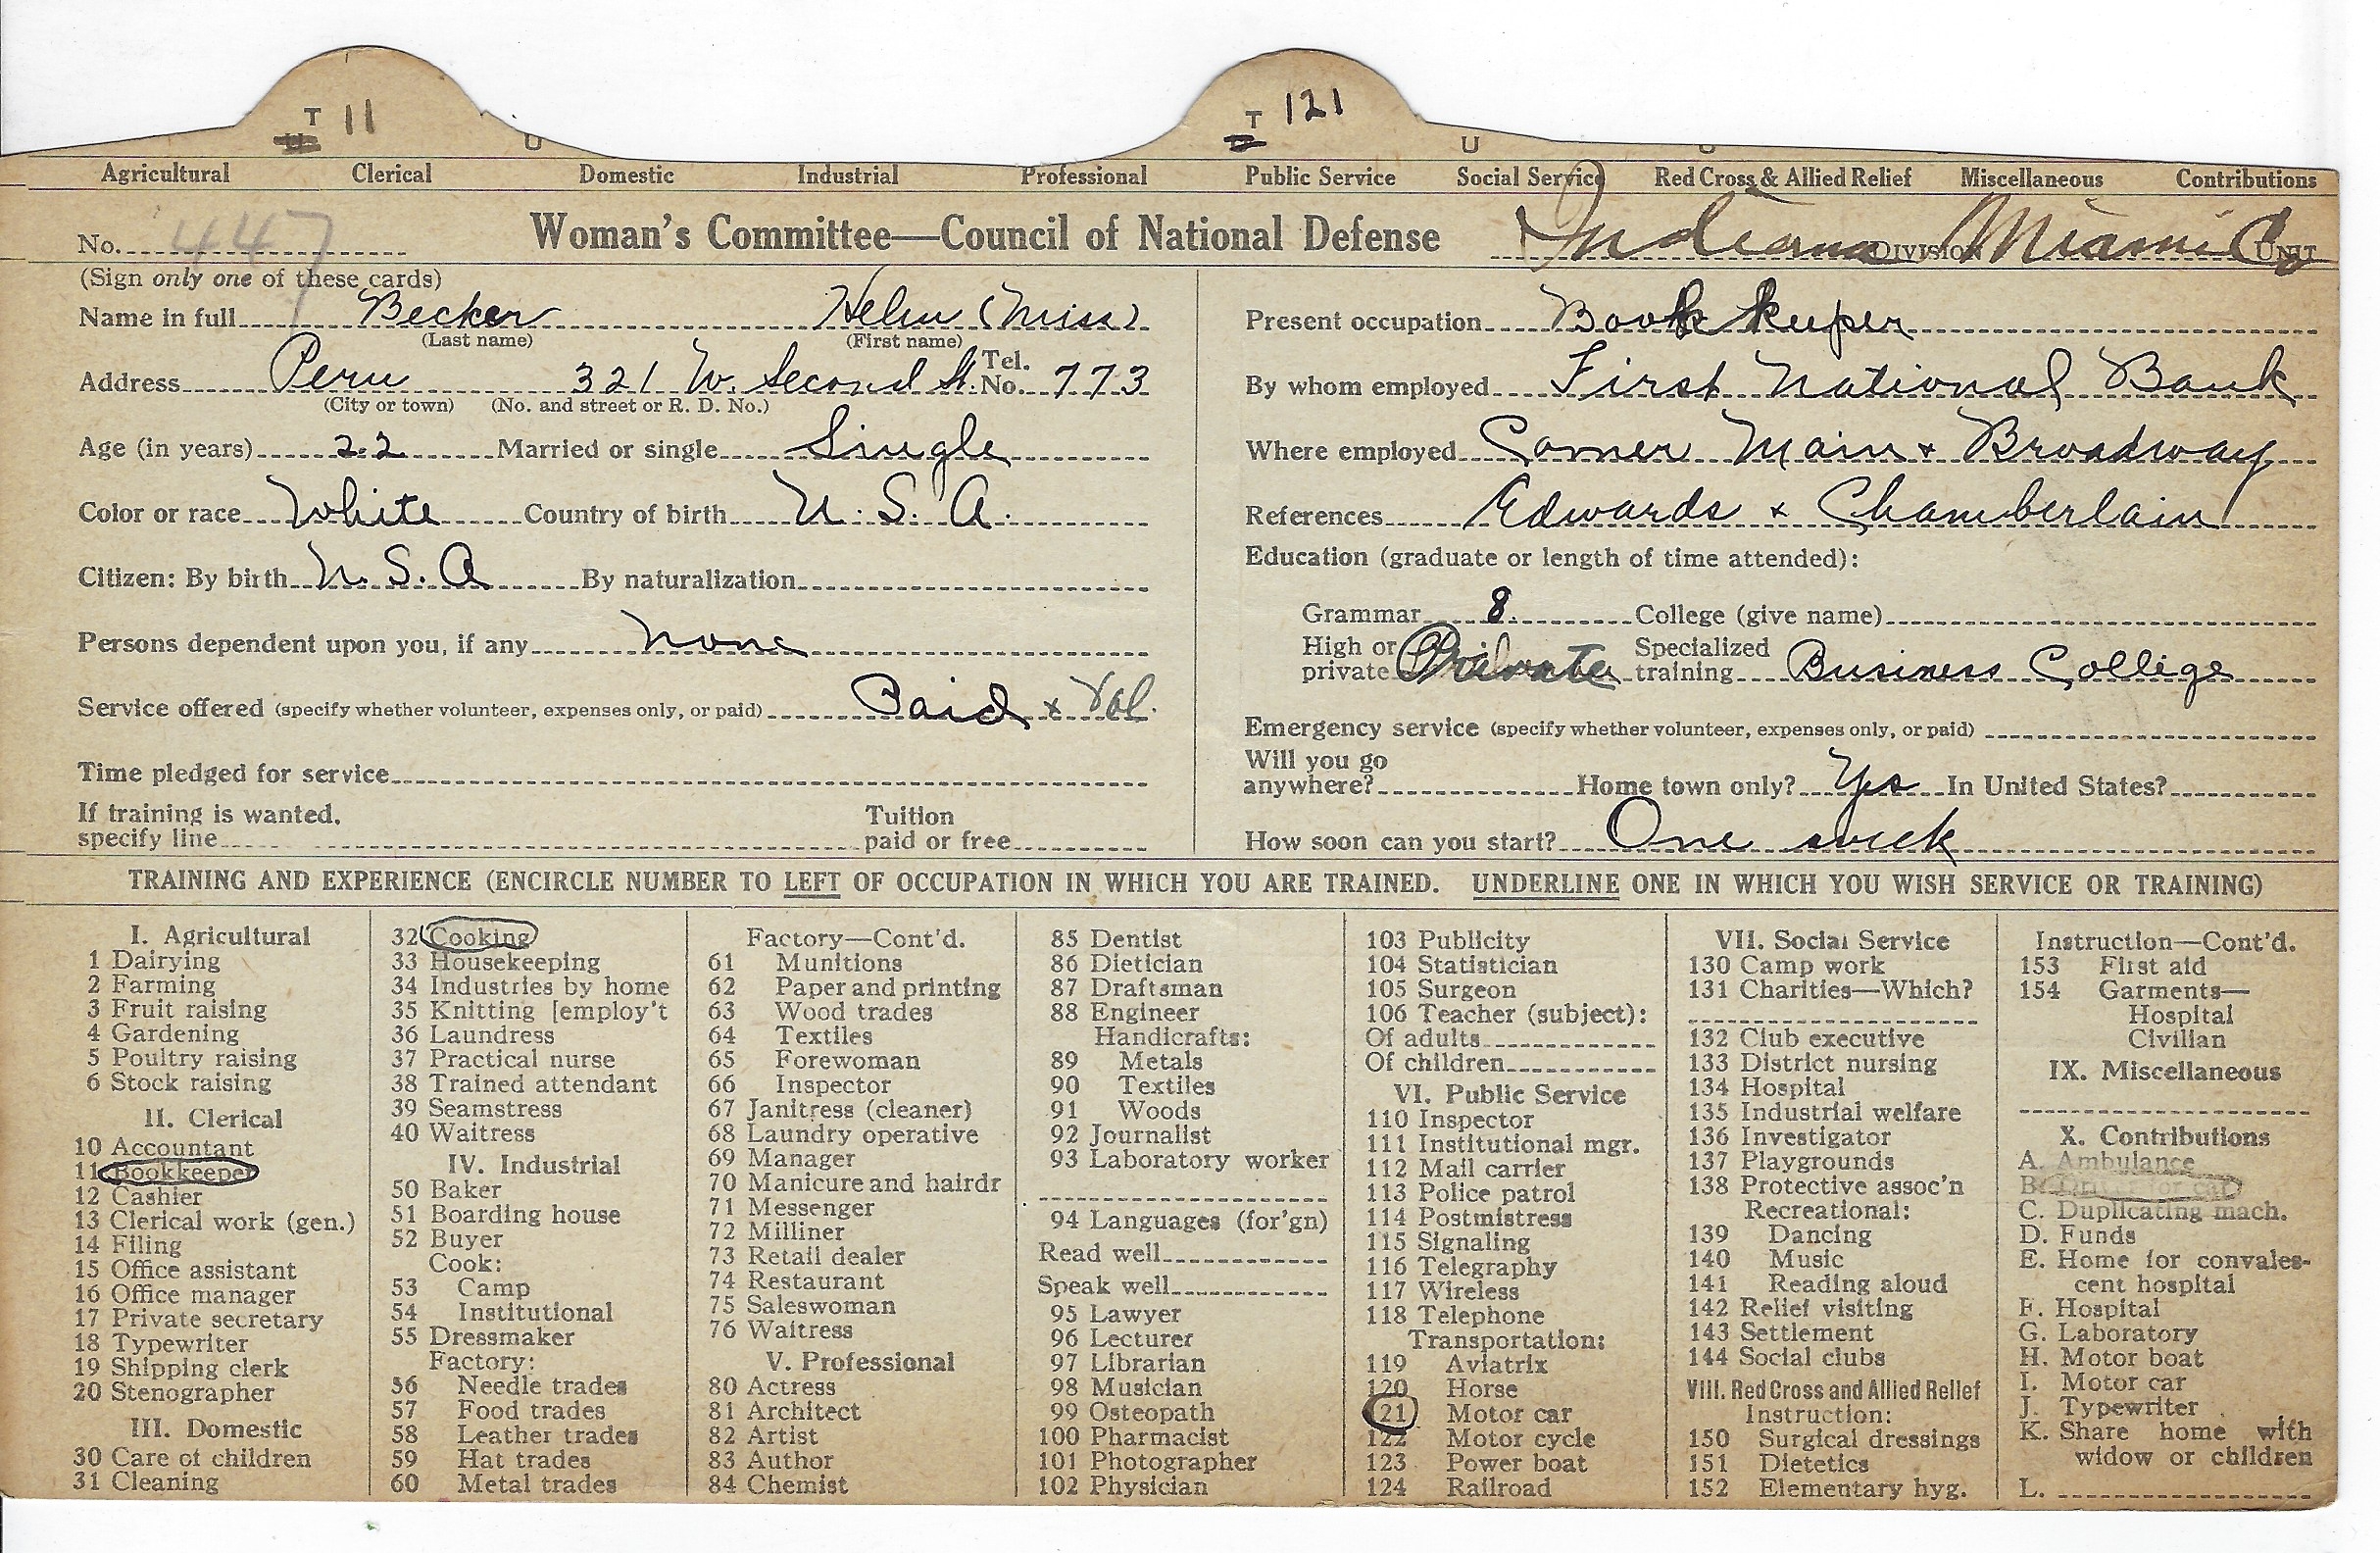 T 11 T 121
U U U
Agricultural Clerical Domestic Industrial Professional Public Service Social Service Red Cross & Allied Relief Miscellaneous Contributions
No. 447 Woman's Committee—Council of National Defense Indiana DIVISION Miami Co UNIT
(Sign only one of these cards)
Name in full Becker Helen (Miss)
(Last name) (First name)
Address Peru 321 W. Second St. Tel. No. 773
(City or town) (No. and street or R. D. No.)
Age (in years) 22 Married or single Single
Color or race White Country of birth U. S. A.
Citizen: By birth U. S. A By naturalization
Persons dependent upon you, if any none
Service offered (specify whether volunteer, expenses only, or paid) Paid & Vol.
Time pledged for service
If training is wanted, specify line Tuition paid or free
Present occupation Book keeper
By whom employed First National Bank
Where employed Corner Main & Broadway
References Edwards & Chamberlain
Education (graduate or length of time attended):
Grammar 8. College (give name)
High or private Private Specialized training Business College
Emergency service (specify whether volunteer, expenses only, or paid)
Will you go anywhere? Home town only? Yes In United States?
How soon can you start? One week
TRAINING AND EXPERIENCE (ENCIRCLE NUMBER TO LEFT OF OCCUPATION IN WHICH YOU ARE TRAINED. UNDERLINE ONE IN WHICH YOU WISH SERVICE OR TRAINING)
I. Agricultural
1 Dairying
2 Farming
3 Fruit raising
4 Gardening
5 Poultry raising
6 Stock raising
II. Clerical
10 Accountant
11 Bookkeeper
12 Cashier
13 Clerical work (gen.)
14 Filing
15 Office assistant
16 Office manager
17 Private secretary
18 Typewriter
19 Shipping clerk
20 Stenographer
III. Domestic
30 Care of children
31 Cleaning
32 Cooking
33 Housekeeping
34 Industries by home
35 Knitting [employ't
36 Laundress
37 Practical nurse
38 Trained attendant
39 Seamstress
40 Waitress
IV. Industrial
50 Baker
51 Boarding house
52 Buyer
Cook:
53 Camp
54 Institutional
55 Dressmaker
Factory:
56 Needle trades
57 Food trades
58 Leather trades
59 Hat trades
60 Metal trades
Factory—Cont'd.
61 Munitions
62 Paper and printing
63 Wood trades
64 Textiles
65 Forewoman
66 Inspector
67 Janitress (cleaner)
68 Laundry operative
69 Manager
70 Manicure and hairdr
71 Messenger
72 Milliner
73 Retail dealer
74 Restaurant
75 Saleswoman
76 Waitress
V. Professional
80 Actress
81 Architect
82 Artist
83 Author
84 Chemist
85 Dentist
86 Dietician
87 Draftsman
88 Engineer
Handicrafts:
89 Metals
90 Textiles
91 Woods
92 Journalist
93 Laboratory worker
94 Languages (for'gn)
Read well
Speak well
95 Lawyer
96 Lecturer
97 Librarian
98 Musician
99 Osteopath
100 Pharmacist
101 Photographer
102 Physician
103 Publicity
104 Statistician
105 Surgeon
106 Teacher (subject):
Of adults
Of children
VI. Public Service
110 Inspector
111 Institutional mgr.
112 Mail carrier
113 Police patrol
114 Postmistress
115 Signaling
116 Telegraphy
117 Wireless
118 Telephone
Transportation:
119 Aviatrix
120 Horse
121 Motor car
122 Motor cycle
123 Power boat
124 Railroad
VII. Social Service
130 Camp work
131 Charities—Which?
132 Club executive
133 District nursing
134 Hospital
135 Industrial welfare
136 Investigator
137 Playgrounds
138 Protective assoc'n
Recreational:
139 Dancing
140 Music
141 Reading aloud
142 Relief visiting
143 Settlement
144 Social clubs
VIII. Red Cross and Allied Relief
Instruction:
150 Surgical dressings
151 Dietetics
152 Elementary hyg.
Instruction—Cont'd.
153 First aid
154 Garments—
Hospital
Civilian
IX. Miscellaneous
X. Contributions
A. Ambulance
B. Driver for car
C. Duplicating mach.
D. Funds
E. Home for convales-
cent hospital
F. Hospital
G. Laboratory
H. Motor boat
I. Motor car
J. Typewriter
K. Share home with
widow or children
L.